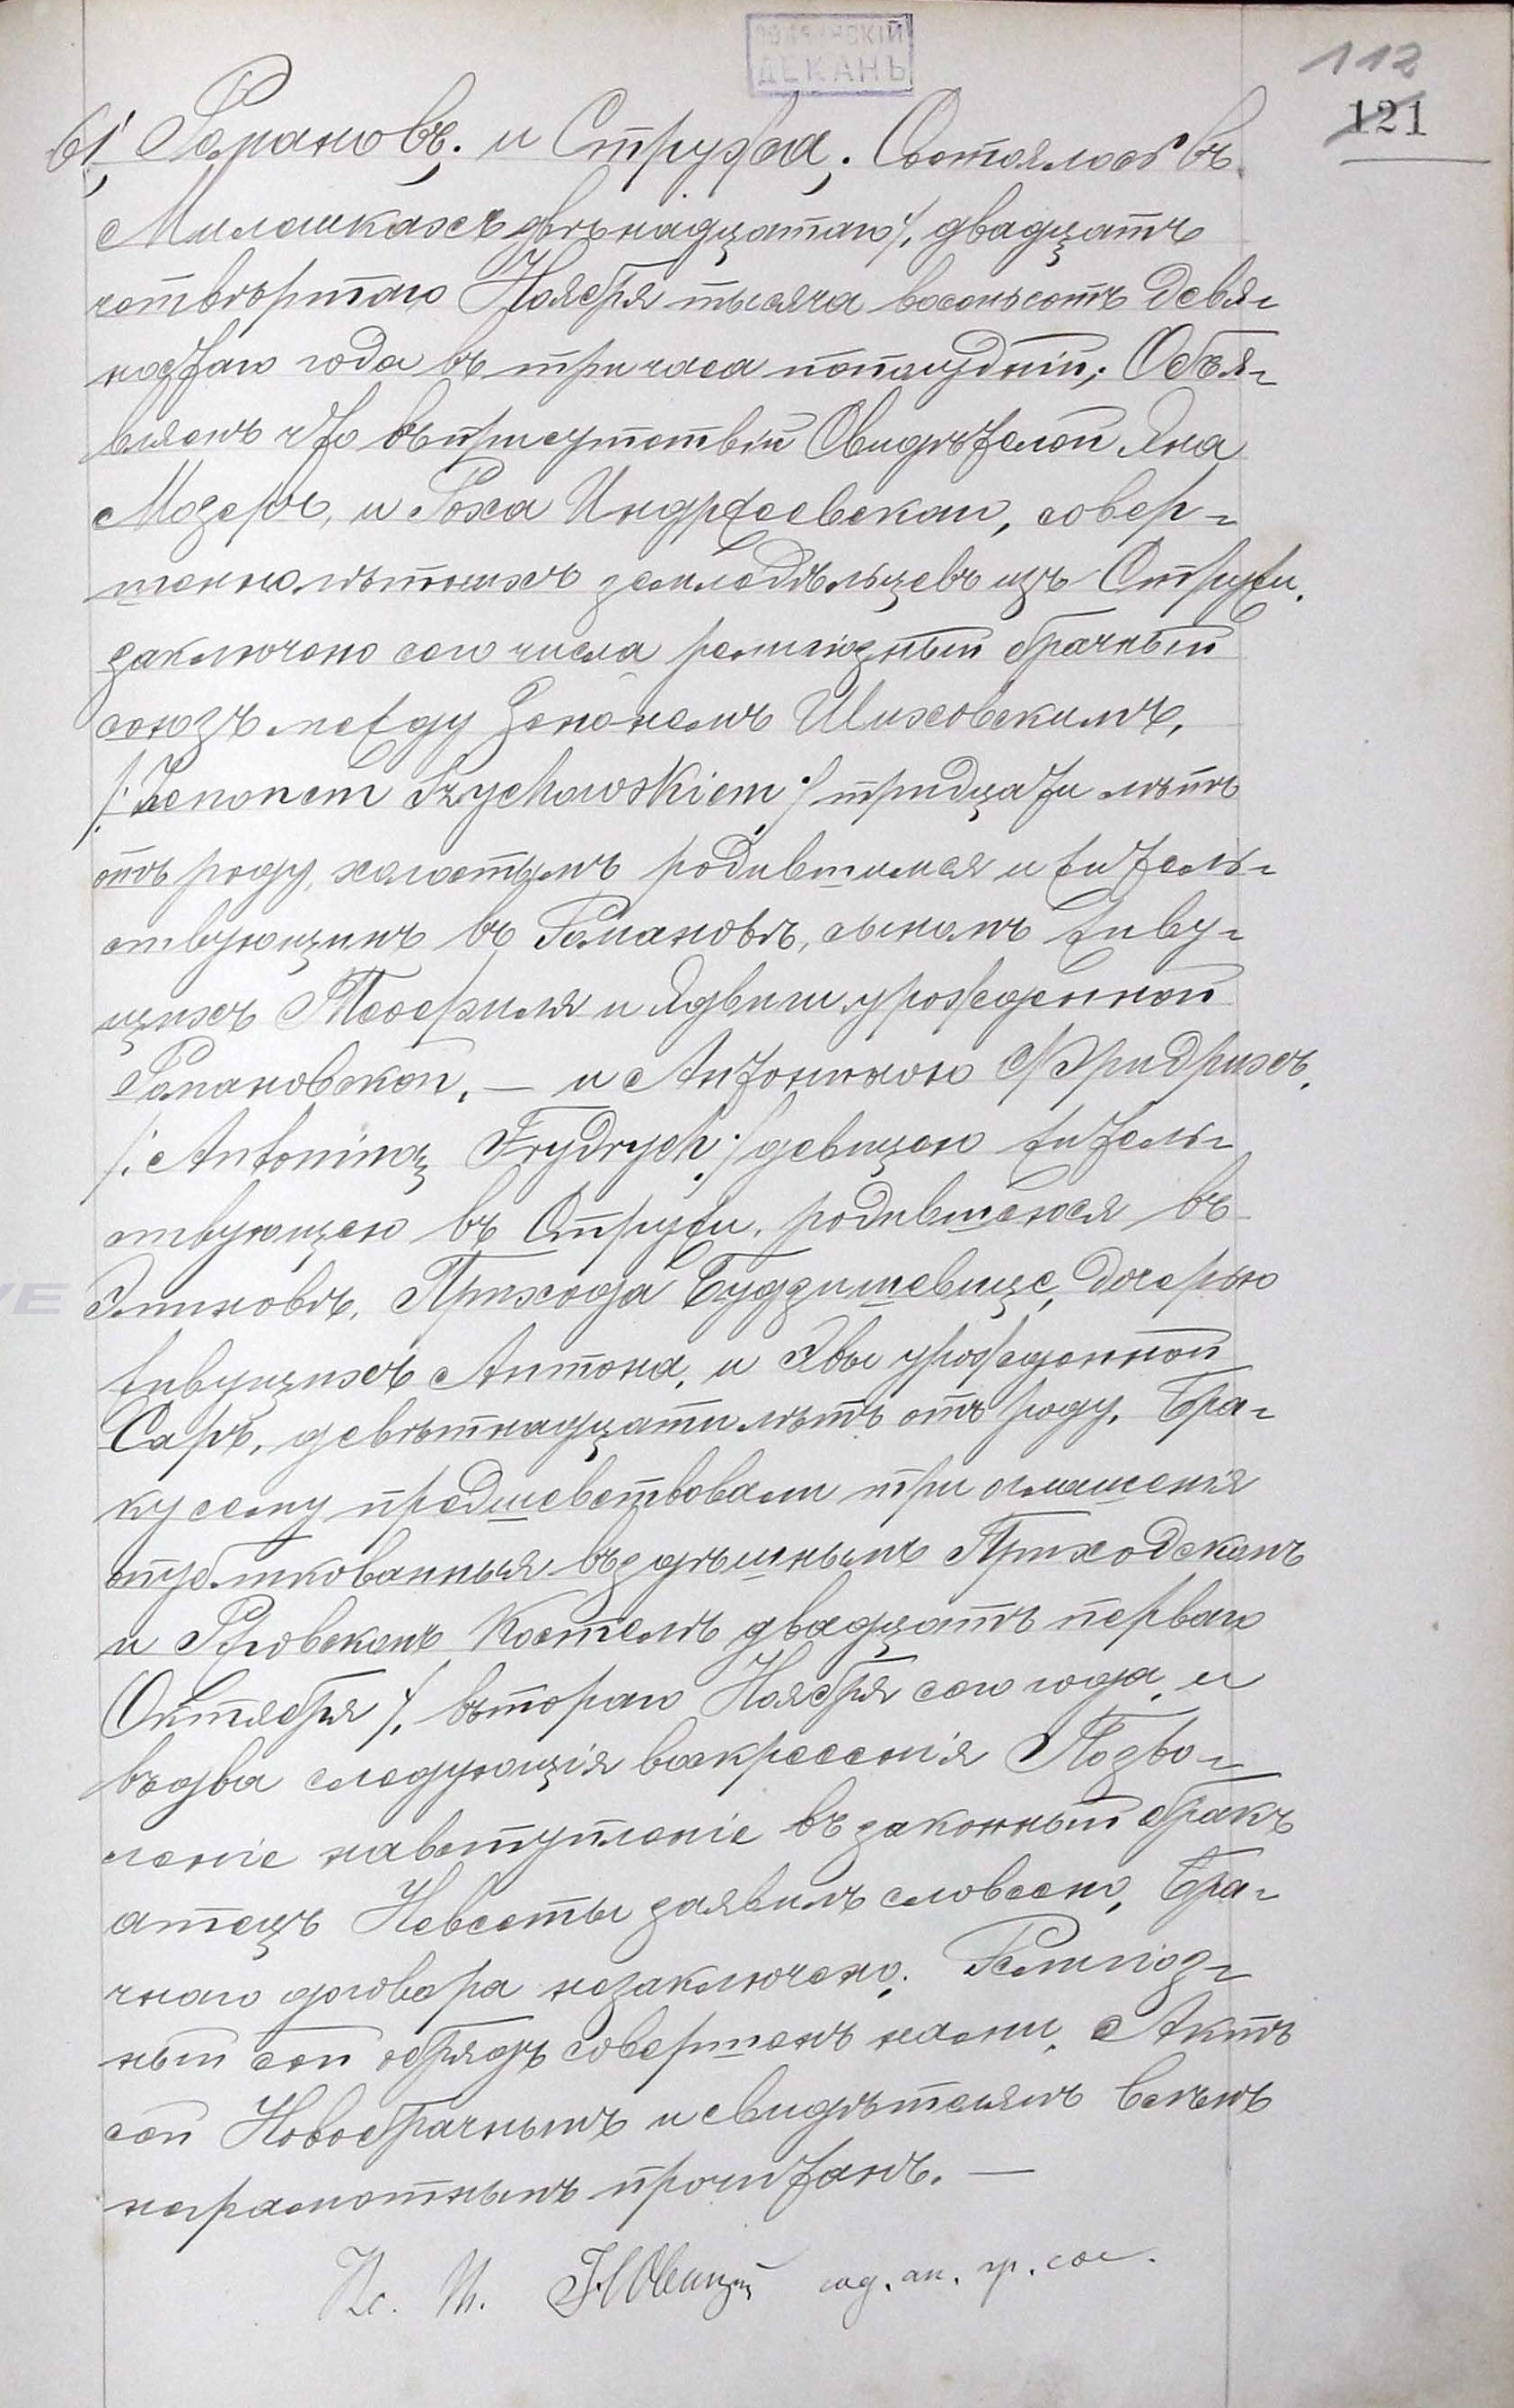 ДЕКАНЪ
112
121
61, Романовъ. и Стружа. Состоялось въ
Милошкахъ двѣнадцатаго /. двадцать
четвѣртаго Ноября тысяча восемьсотъ девя-
ностаго года въ три часа пополудній; Объя-
вляемъ что въ присутствіи Свидѣтелей Яна
Мозеръ, и Роха Индржеевскаго, совер-
шеннолѣтнихъ земледѣльцевъ изъ Стружи.
заключено сего числа религіозный брачный
союзъ между Зенономъ Шиховскимъ,
/: Zenonem Szychowskiem :/ тридцати лѣтъ
отъ роду, холостымъ родившимся и житель-
ствующимъ въ Романовѣ, сыномъ живу-
щихъ Теофиля и Ядвиги урожденной
Романовской, — и Антониною Фридрихъ,
/: Antoniną Frydrych :/ девицею житель-
ствующею въ Стружи, родившеюся въ
Эминовѣ, Прихода Будзишевице, дочерью
живущихъ Антона, и Эвы урожденной
Саръ, девѣтнадцати лѣтъ отъ роду. Бра-
ку сему предшевствовали три оглашенія
опубликованныя въ здѣшнымъ Приходскомъ
и Рговскомъ Костелѣ двадцать перваго
Октября /. второго Ноября сего года, и
въ два следующія воскресенія Позво-
леніе на вступленіе въ законный бракъ
отецъ Невесты заявилъ словесно, Бра-
чнаго договора незаключено. Религіоз-
ный сей обрядъ совершенъ нами. Актъ
сей Новобрачнымъ и свидѣтелямъ всемъ
неграмотнымъ прочитанъ. —
Кс. И. сод. ак. гр. сос.